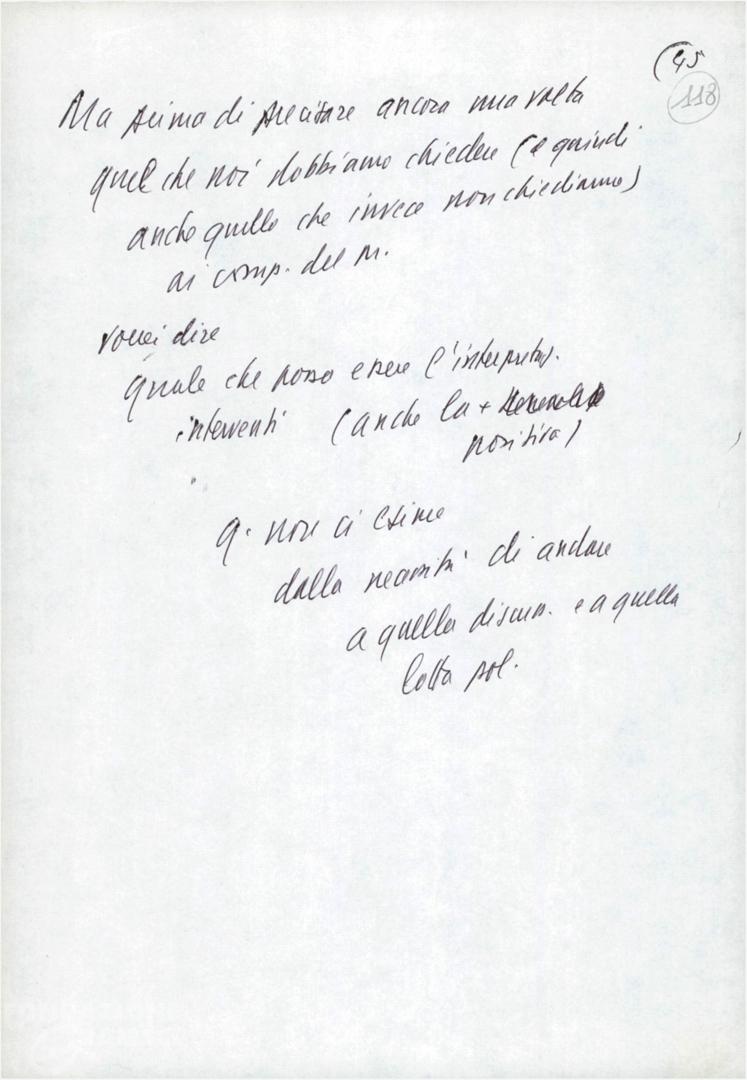 (45
118
Ma prima di precisare ancora una volta
quel che noi dobbiamo chiedere (e quindi
anche quello che invece non chiediamo)
ai comp. del M.
vorrei dire
quale che possa essere l'interpretaz.
interventi (anche la +
positiva)
q. non ci esime
dalla necessità di andare
a quella discuss. e a quella
lotta pol.